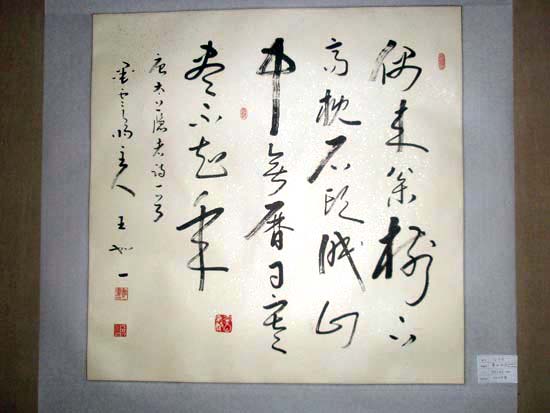 偶来松樹下
高枕石頭眠山
中無曆日寒
盡不知年
唐太上隱者詩一首
主人 王如一